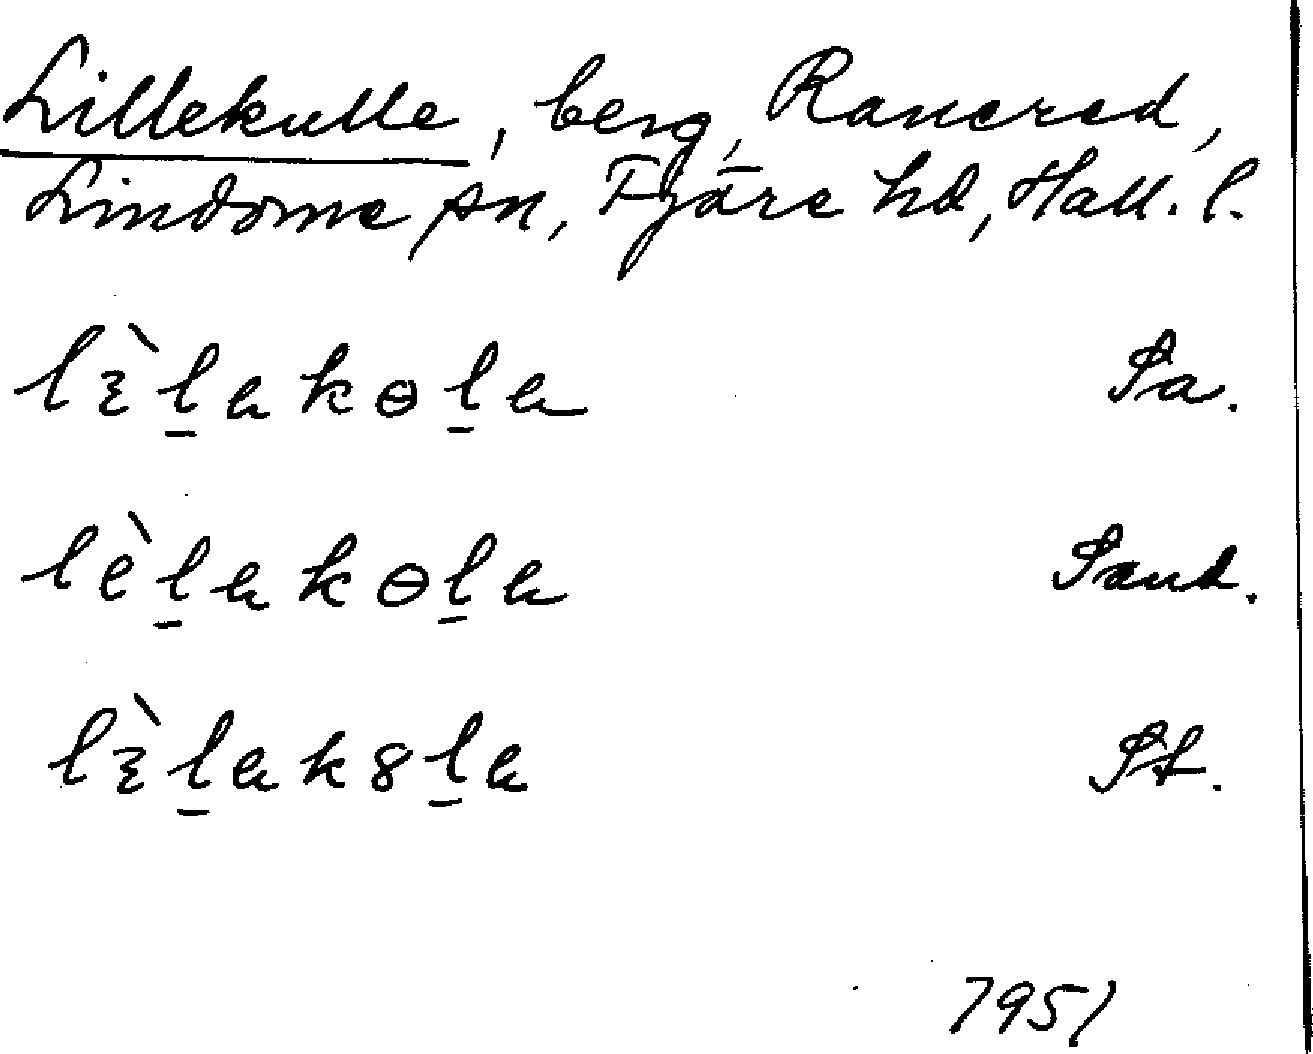 Lillekulle, berg, Ranered,
Lindome sn, Fjäre hd, Hall. l.
lɛ̀l̠akɵl̠a Sa.
lèl̠akɵl̠a Sand.
lɛ̀l̠ak8l̠a St.
7951